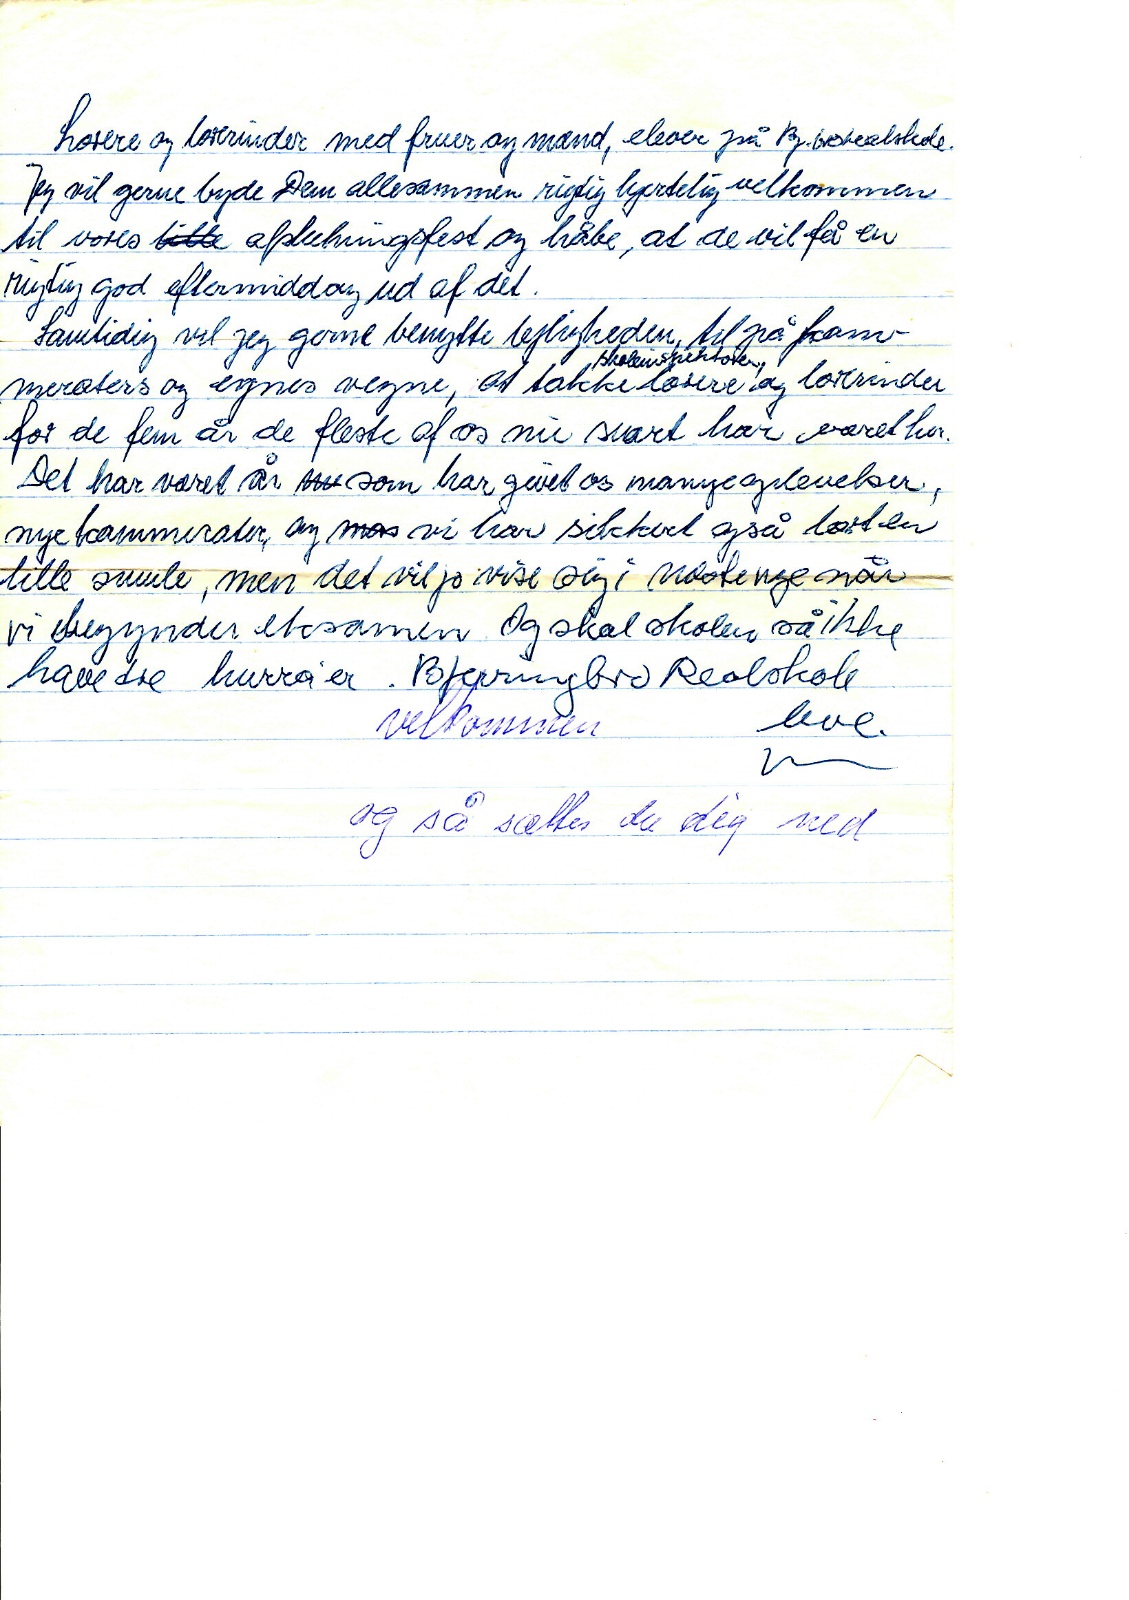 Lærere og lærerinder med fruer og mænd, elever på Bj.brorealskole.
Jeg vil gerne byde Dem allesammen rigtig hjertelig velkommen
til vores lille afslutningsfest og håbe, at de vil få en
rigtig god eftermiddag ud af det.
Samtidig vil jeg gerne benytte lejligheden, til på kam-
skoleinspektøren,
meraters og egnes vegne, at takke lærere og lærerinder
for de fem år de fleste af os nu snart har været her.
Det har været år nu som har givet os mange oplevelser,
nye kammerater, og mas vi har sikkert også lært en
lille smule, men det vil jo vise sig i næste uge når
vi begynder eksamen Og skal skolen så ikke
have tre hurrá'er. Bjerringbro Realskole
velkommen leve.
og så sættes du dig ned